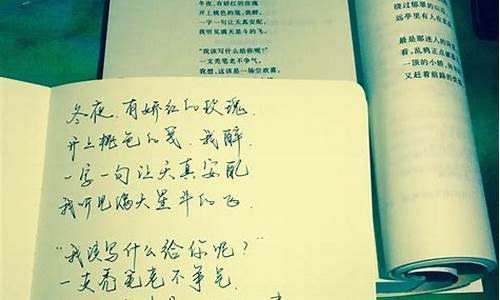 冬夜,有娇红的玫瑰
开上桃色的笺,我醉,
一字一句让天真安配,
我听见满天星斗的飞。
“我该写什么给你呢?”
一支秃笔老不争气,
我想,这该是一场空欢喜。
绕过郁翠的山
远亭里有人在
最是那迷人的
看,乱鸦正点破
一顶的小轿,
又赶着前路的
冬夜,有娇红的玫瑰
开上桃色的笺,我醉,
一字一句让天真安配
我听见满天星斗的飞.
“我该写什么给你呢?”
一支秃笔老不争气,